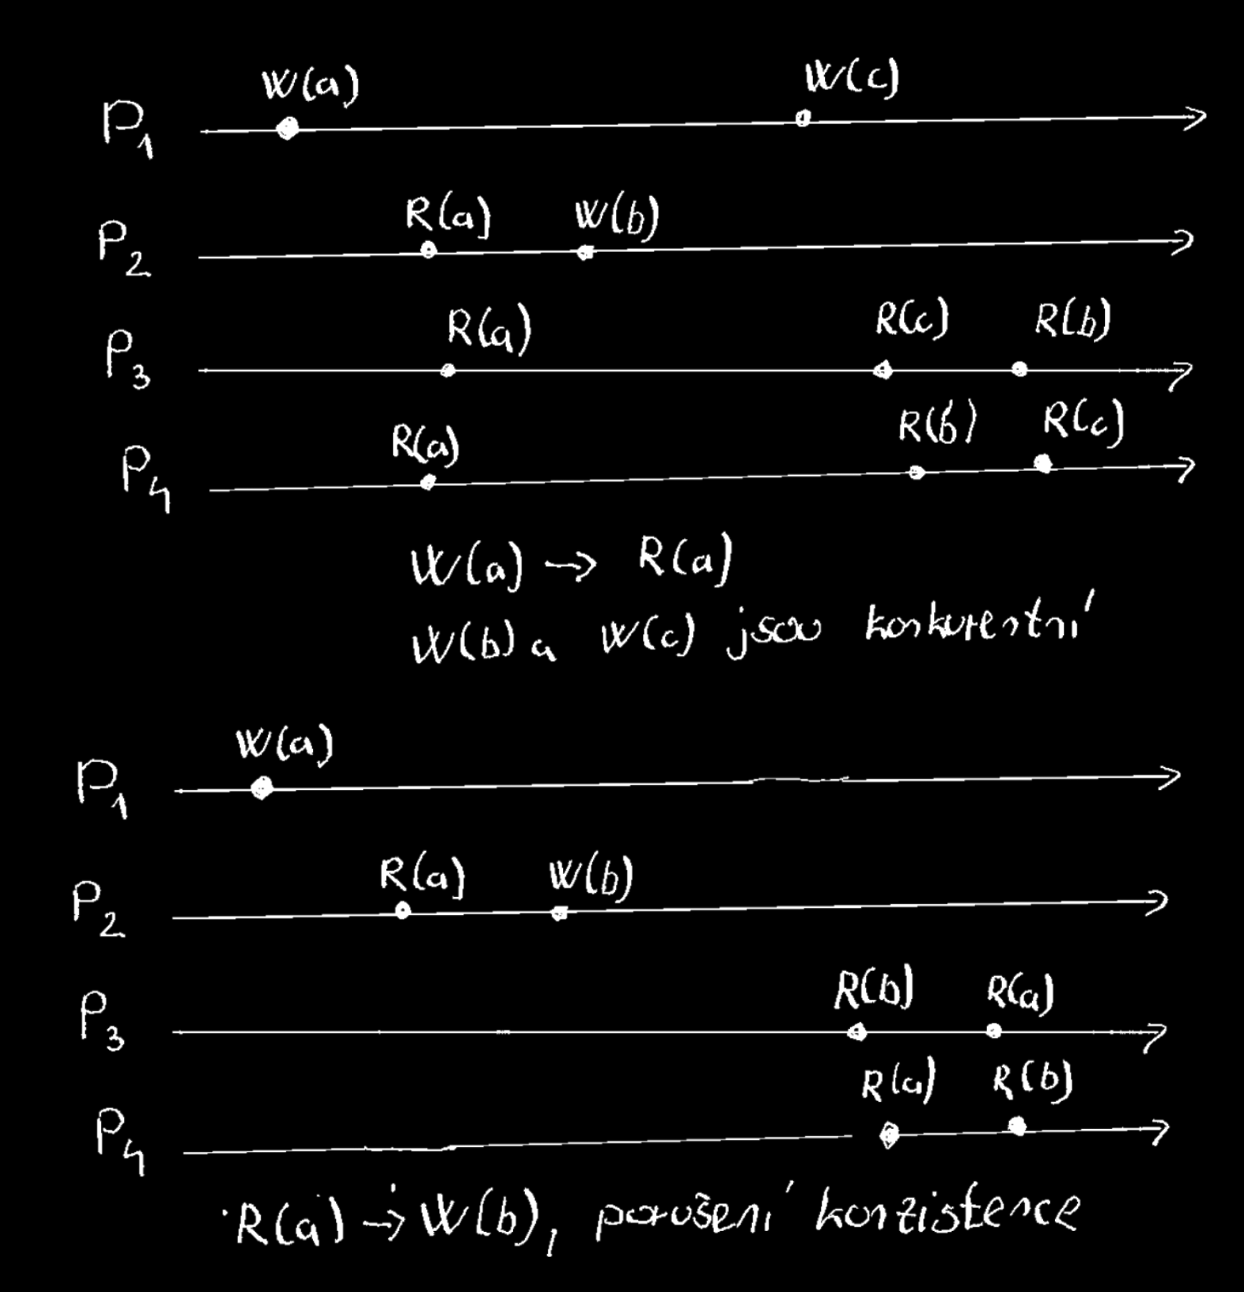 W(a) W(c)
P1
R(a) W(b)
P2
R(a) R(c) R(b)
P3
R(a) R(b) R(c)
P4
W(a) → R(a)
W(b) a W(c) jsou konkurentní
W(a)
P1
R(a) W(b)
P2
R(b) R(a)
P3
R(a) R(b)
P4
R(a) → W(b), porušení konzistence